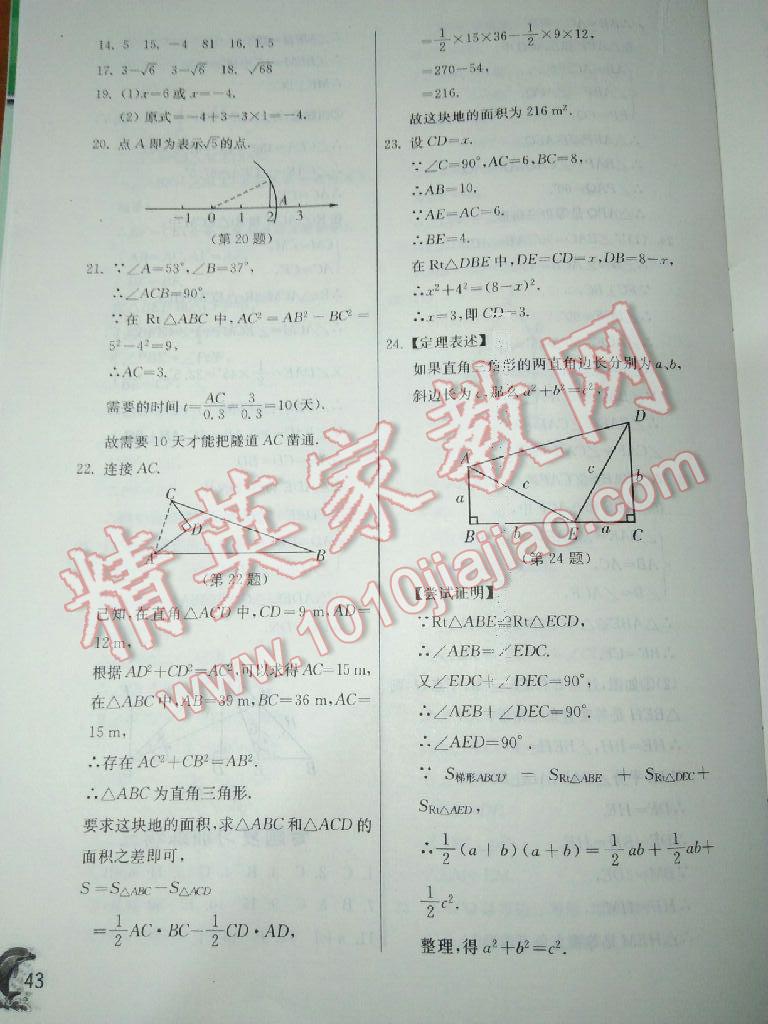 14. 5  15. -4  81  16. 1.5
17. 3-√6  3-√6  18. √68
19. (1)x=6或x=-4.
(2) 原式=-4+3-3×1=-4.
20. 点A即为表示√5的点.
A
-1 0 1 2 3
(第20题)
21. ∵∠A=53°,∠B=37°,
∴∠ACB=90°.
∵在 Rt△ABC 中,AC²=AB²-BC²=
5²-4²=9,
∴AC=3.
需要的时间t=AC/0.3=3/0.3=10(天).
故需要10天才能把隧道AC凿通.
22. 连接AC.
C
D
A B
(第22题)
已知,在直角△ACD中,CD=9 m,AD=
12 m,
根据AD²+CD²=AC²,可以求得AC=15 m,
在△ABC中,AB=39 m,BC=36 m,AC=
15 m,
∴存在AC²+CB²=AB².
∴△ABC为直角三角形.
要求这块地的面积,求△ABC和△ACD的
面积之差即可,
S=S△ABC-S△ACD
=1/2AC·BC-1/2CD·AD,
43
=1/2×15×36-1/2×9×12,
=270-54,
=216.
故这块地的面积为216 m².
23. 设CD=x.
∵∠C=90°,AC=6,BC=8,
∴AB=10,
∵AE=AC=6.
∴BE=4.
在Rt△DBE中,DE=CD=x,DB=8-x,
∴x²+4²=(8-x)².
∴x=3,即CD=3.
24.【定理表述】
如果直角三角形的两直角边长分别为a、b,
斜边长为c,那么a²+b²=c²,
D
A
c c b
a
B b E a C
(第24题)
【尝试证明】
∵Rt△ABE≌Rt△ECD,
∴∠AEB=∠EDC.
又∠EDC+∠DEC=90°,
∴∠AEB+∠DEC=90°.
∴∠AED=90°.
∵ S梯形ABCD = SRt△ABE + SRt△DEC+
SRt△AED,
∴1/2(a+b)(a+b)=1/2ab+1/2ab+
1/2c².
整理,得a²+b²=c².
精英家教网
www.1010jiajiao.com